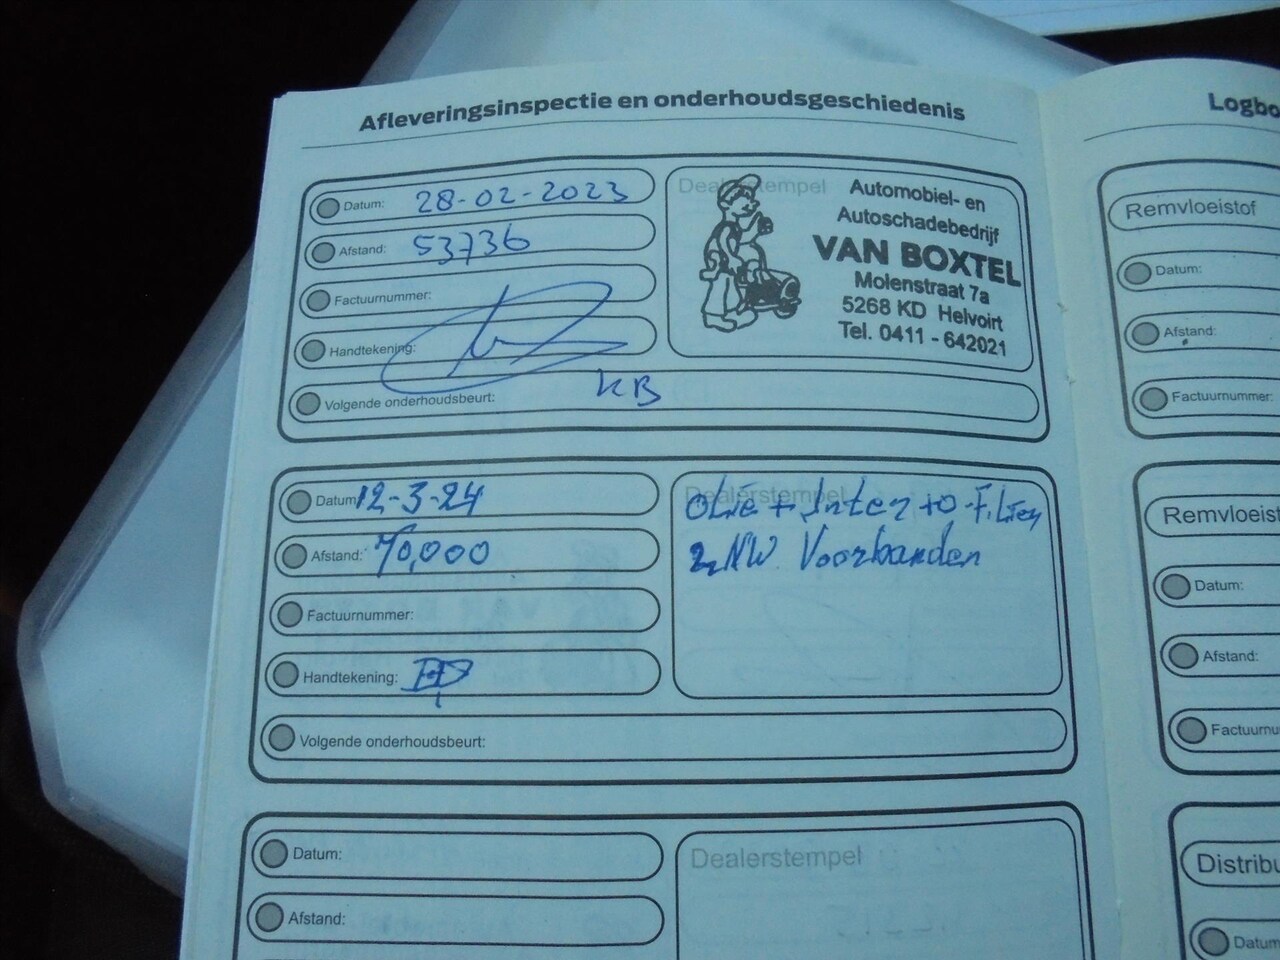 Afleveringsinspectie en onderhoudsgeschiedenis
Datum: 28-02-2023
Afstand: 53736
Factuurnummer:
Handtekening:
Volgende onderhoudsbeurt: KB
Dealerstempel
Automobiel- en
Autoschadebedrijf
VAN BOXTEL
Molenstraat 7a
5268 KD Helvoirt
Tel. 0411 - 642021
Datum: 12-3-24
Afstand: 70,000
Factuurnummer:
Handtekening:
Volgende onderhoudsbeurt:
Dealerstempel
olie + Inter +o-Filter
2 NW. Voorbanden
Datum:
Afstand:
Dealerstempel
Logbo
Remvloeistof
Datum:
Afstand:
Factuurnummer:
Remvloeist
Datum:
Afstand:
Factuurnu
Distribu
Datum